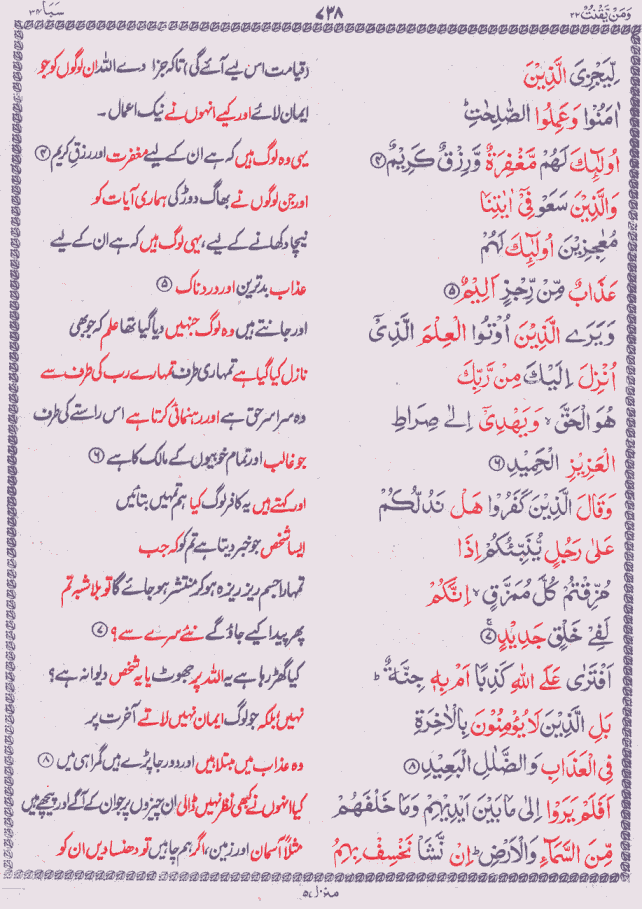 وَمَنْ يَّقْنُتْ ٢٢
٧٣٨
سَبَا ٣٤
لِّيَجْزِىَ الَّذِيْنَ
(قیامت اس لیے آئے گی) تاکہ جزا دے اللہ ان لوگوں کو جو
اٰمَنُوْا وَعَمِلُوا الصّٰلِحٰتِ ؕ
ایمان لائے اور کیے انہوں نے نیک اعمال ۔
اُولٰٓئِكَ لَهُمْ مَّغْفِرَةٌ وَّرِزْقٌ كَرِيْمٌ ۝۴
یہی وہ لوگ ہیں کہ ہے ان کے لیے مغفرت اور رزقِ کریم ۝۴
وَالَّذِيْنَ سَعَوْ فِىْٓ اٰيٰتِنَا
اور جن لوگوں نے بھاگ دوڑ کی ہماری آیات کو
مُعٰجِزِيْنَ اُولٰٓئِكَ لَهُمْ
نیچا دکھانے کے لیے، یہی لوگ ہیں کہ ہے ان کے لیے
عَذَابٌ مِّنْ رِّجْزٍ اَلِيْمٌ ۝۵
عذاب بدترین اور دردناک ۝۵
وَيَرَى الَّذِيْنَ اُوْتُوا الْعِلْمَ الَّذِىْٓ
اور جانتے ہیں وہ لوگ جنہیں دیا گیا تھا علم کہ جو بھی
اُنْزِلَ اِلَيْكَ مِنْ رَّبِّكَ
نازل کیا گیا ہے تمہاری طرف تمہارے رب کی طرف سے
هُوَ الْحَقَّ ۙ وَيَهْدِىْٓ اِلٰى صِرَاطِ
وہ سراسر حق ہے اور رہنمائی کرتا ہے اس راستے کی طرف
الْعَزِيْزِ الْحَمِيْدِ ۝۶
جو غالب اور تمام خوبیوں کے مالک کا ہے ۝۶
وَقَالَ الَّذِيْنَ كَفَرُوْا هَلْ نَدُلُّكُمْ
اور کہتے ہیں یہ کافر لوگ کیا ہم تمہیں بتائیں
عَلٰى رَجُلٍ يُّنَبِّئُكُمْ اِذَا
ایسا شخص جو خبر دیتا ہے تم کو کہ جب
مُزِّقْتُمْ كُلَّ مُمَزَّقٍ ۙ اِنَّكُمْ
تمہارا جسم ریزہ ریزہ ہو کر منتشر ہو جائے گا تو بلاشبہ تم
لَفِىْ خَلْقٍ جَدِيْدٍ ۝۷
پھر پیدا کیے جاؤ گے نئے سرے سے؟ ۝۷
اَفْتَرٰى عَلَى اللّٰهِ كَذِبًا اَمْ بِهٖ جِنَّةٌ ؕ
کیا گھڑ رہا ہے یہ اللہ پر جھوٹ یا یہ شخص دیوانہ ہے؟
بَلِ الَّذِيْنَ لَا يُؤْمِنُوْنَ بِالْاٰخِرَةِ
نہیں! بلکہ جو لوگ ایمان نہیں لاتے آخرت پر
فِى الْعَذَابِ وَالضَّلٰلِ الْبَعِيْدِ ۝۸
وہ عذاب میں مبتلا ہیں اور دور جا پڑے ہیں گمراہی میں ۝۸
اَفَلَمْ يَرَوْا اِلٰى مَا بَيْنَ اَيْدِيْهِمْ وَمَا خَلْفَهُمْ
کیا انہوں نے کبھی نظر نہیں ڈالی ان چیزوں پر جو ان کے آگے اور پیچھے ہیں
مِّنَ السَّمَآءِ وَالْاَرْضِ ؕ اِنْ نَّشَاْ نَخْسِفْ بِهِمُ
مثلاً آسمان اور زمین، اگر ہم چاہیں تو دھنسا دیں ان کو
منزل ۵